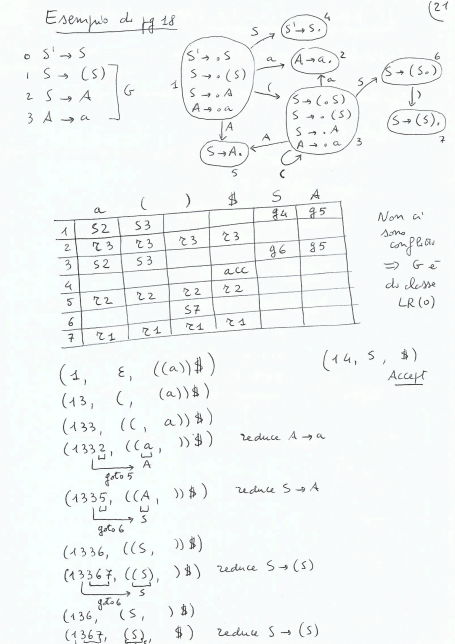 (21
Esempio di pg 18
0 S' → S
1 S → (S)
2 S → A
3 A → a
G
1
S' → .S
S → .(S)
S → .A
A → .a
S
S' → S.
4
a
A → a.
2
(
a
S → (.S)
S → .(S)
S → .A
A → .a
3
(
S
S → (S.)
6
)
S → (S).
7
A
A
S → A.
5
a ( ) $ S A
1 S2 S3 g4 g5
2 r3 r3 r3 r3
3 S2 S3 g6 g5
4 acc
5 r2 r2 r2 r2
6 S7
7 r1 r1 r1 r1
Non ci
sono
conflitti
⇒ G è
di classe
LR(0)
(1, ε, ((a))$)
(13, (, (a))$)
(133, ((, a))$)
(1332, ((a, ))$) reduce A → a
goto 5 A
(1335, ((A, ))$) reduce S → A
goto 6 S
(1336, ((S, ))$)
(13367, ((S), )$) reduce S → (S)
goto 6 S
(136, (S, )$)
(1367, (S), $) reduce S → (S)
(14, S, $)
Accept